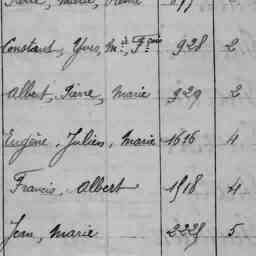 Marie,
Constant, Yves, Mie Fçois 928 2
Albert, Pierre, Marie 929 2
Eugène, Julien, Marie 1616 4
Francis, Albert 1918 4
Jean, Marie 2229 5